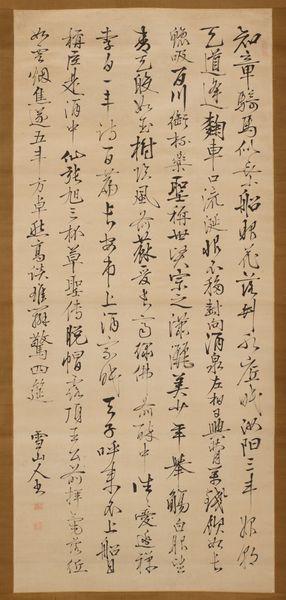 知章騎馬似乘船眼花落井水底眠汝陽三斗始朝
天道逢麴車口流涎恨不移封向酒泉左相日興費萬錢飲如長
鯨吸百川銜杯樂聖稱世賢宗之瀟灑美少年舉觴白眼望
青天皎如玉樹臨風前蘇晉長齋繡佛前醉中往々愛逃禪
李白一斗詩百篇長安市上酒家眠天子呼來不上船自
稱臣是酒中仙張旭三杯草聖傳脫帽露頂王公前揮毫落紙
如雲烟焦遂五斗方卓然高談雄辯驚四筵
雪山人書